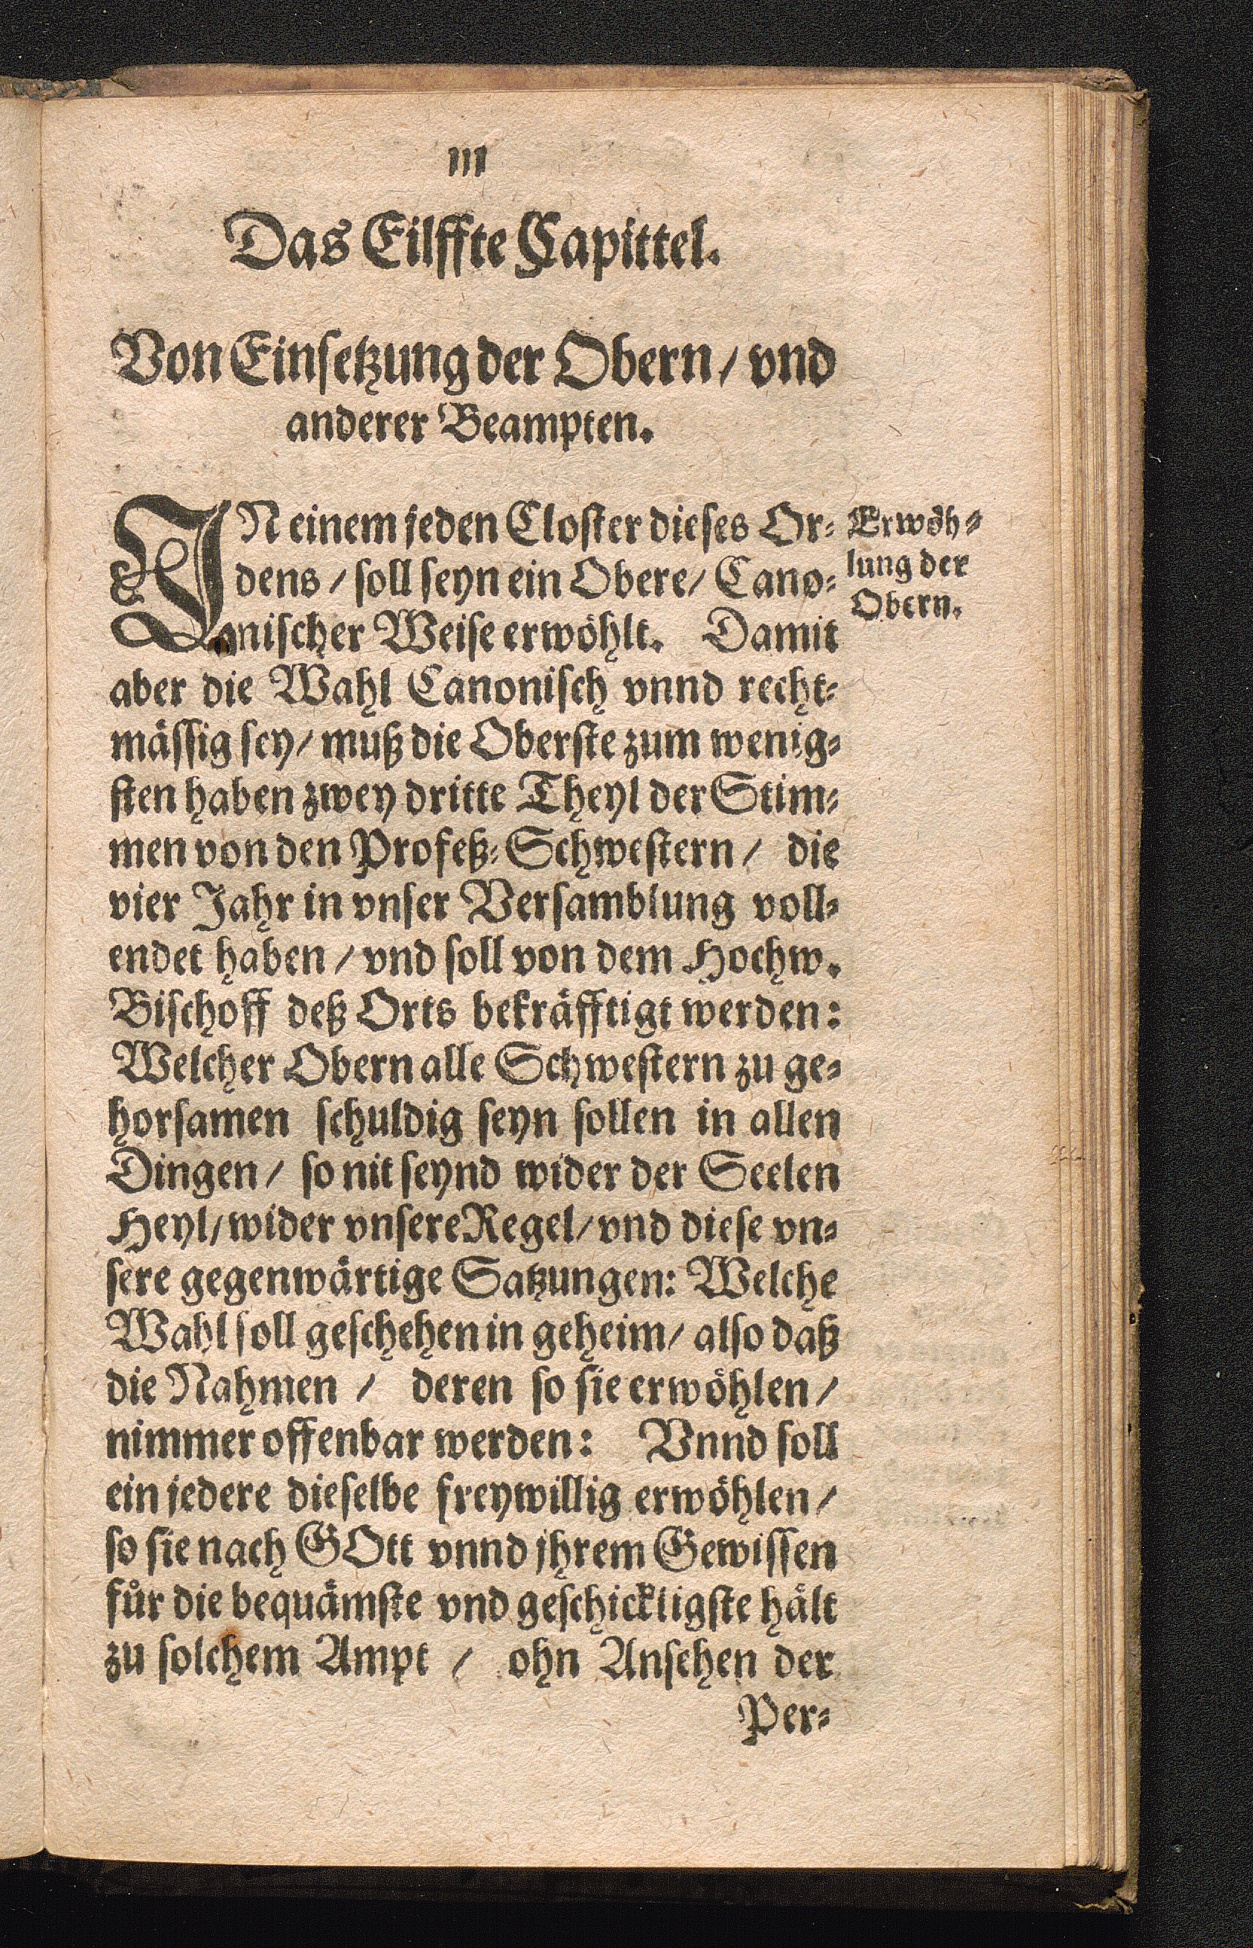 111
Das Eilffte Capittel.
Von Einsetzung der Obern / vnd
anderer Beampten.
IN einem jeden Closter dieses Or-
dens / soll seyn ein Obere / Cano-
nischer Weise erwöhlt. Damit
aber die Wahl Canonisch vnnd recht-
mässig sey / muß die Oberste zum wenig-
sten haben zwey dritte Theyl der Stim-
men von den Profeß-Schwestern / die
vier Jahr in vnser Versamblung voll-
endet haben / vnd soll von dem Hochw.
Bischoff deß Orts bekräfftigt werden:
Welcher Obern alle Schwestern zu ge-
horsamen schuldig seyn sollen in allen
Dingen / so nit seynd wider der Seelen
Heyl / wider vnsere Regel / vnd diese vn-
sere gegenwärtige Satzungen: Welche
Wahl soll geschehen in geheim / also daß
die Nahmen / deren so sie erwöhlen /
nimmer offenbar werden: Vnnd soll
ein jedere dieselbe freywillig erwöhlen /
so sie nach GOtt vnnd jhrem Gewissen
für die bequämste vnd geschickligste hält
zu solchem Ampt / ohn Ansehen der
Per-
Erwöh-
lung der
Obern.